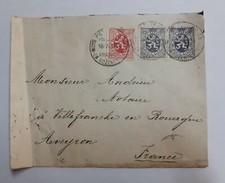 Monsieur Andrieu
Notaire
à Villefranche en Rouergue
Aveyron
France